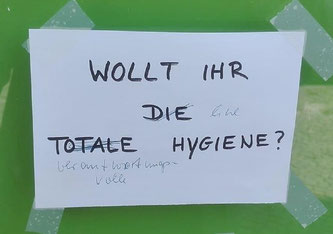 WOLLT IHR
DIE eine
TOTALE HYGIENE?
verantwortungs-
volle